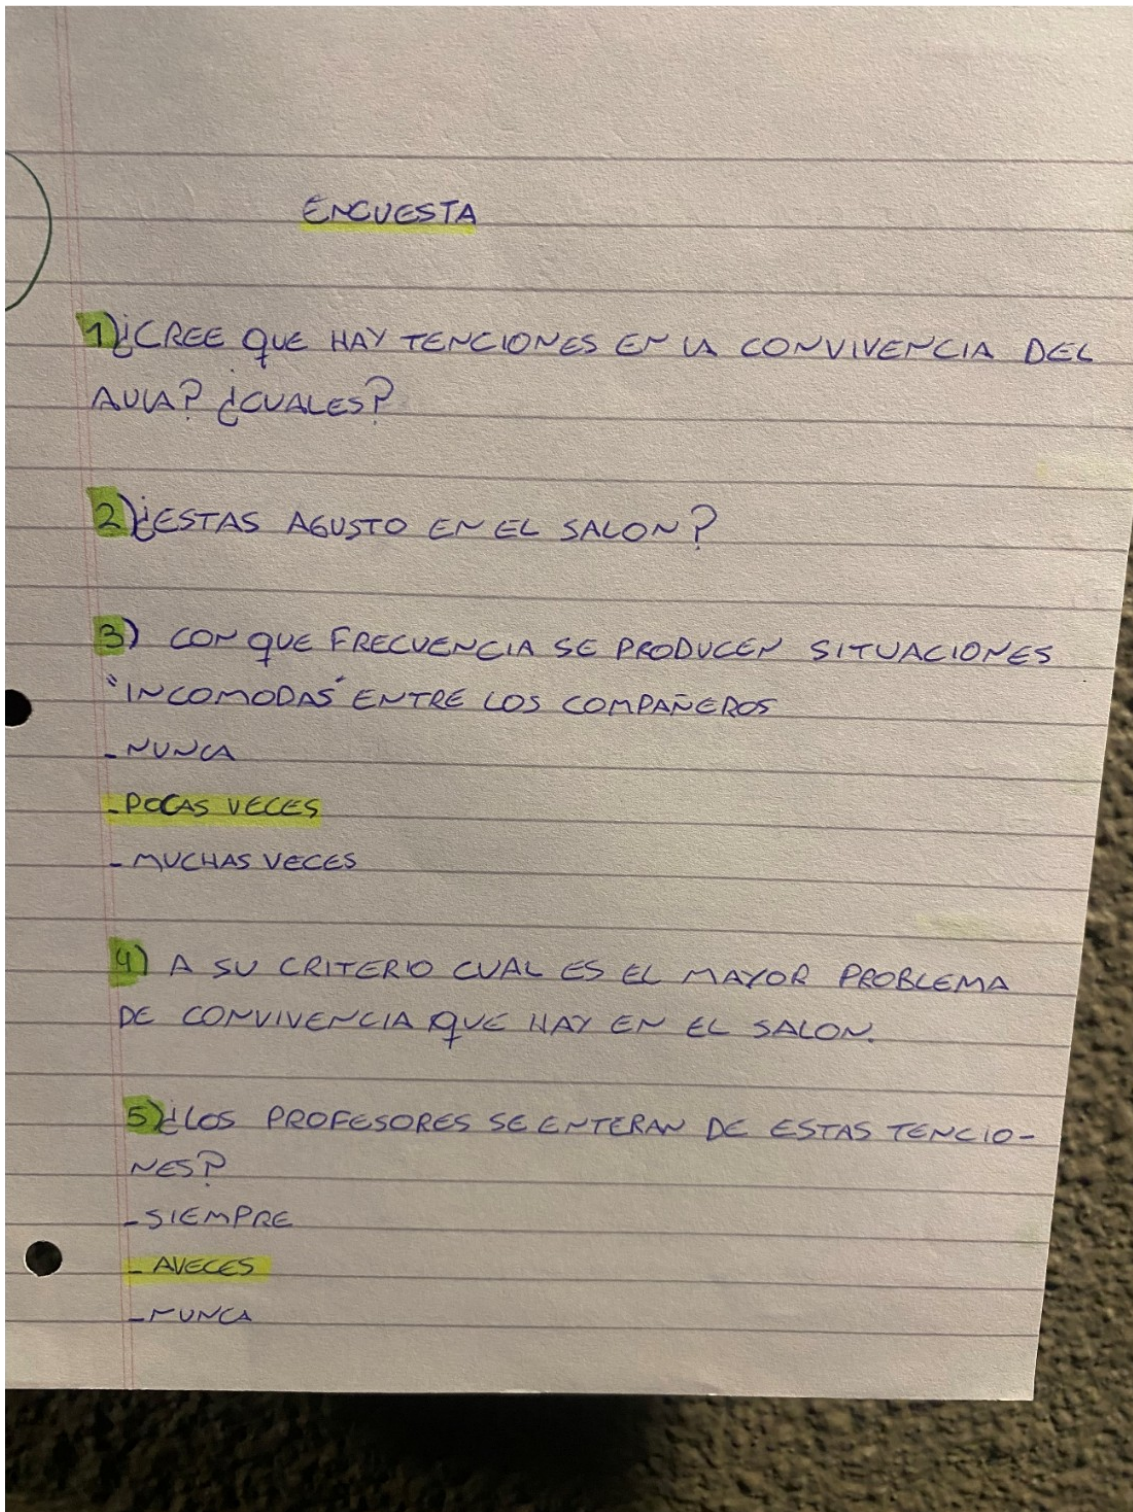 ENCUESTA
1)¿CREE QUE HAY TENCIONES EN LA CONVIVENCIA DEL
AULA? ¿CUALES?
2)¿ESTAS AGUSTO EN EL SALON?
3) CON QUE FRECUENCIA SE PRODUCEN SITUACIONES
"INCOMODAS" ENTRE LOS COMPAÑEROS
- NUNCA
- POCAS VECES
- MUCHAS VECES
4) A SU CRITERIO CUAL ES EL MAYOR PROBLEMA
DE CONVIVENCIA QUE HAY EN EL SALON.
5)¿LOS PROFESORES SE ENTERAN DE ESTAS TENCIO-
NES?
- SIEMPRE
- AVECES
- NUNCA